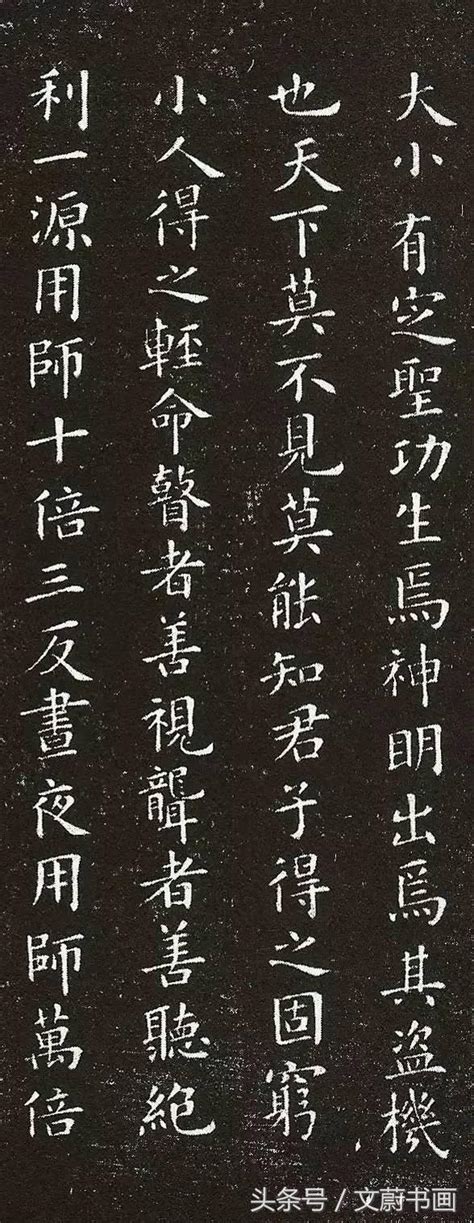 大小有定聖功生焉神明出焉其盜機
也天下莫不見莫能知君子得之固窮
小人得之輕命瞽者善視聾者善聽絕
利一源用師十倍三反晝夜用師萬倍
头条号 / 文蔚书画